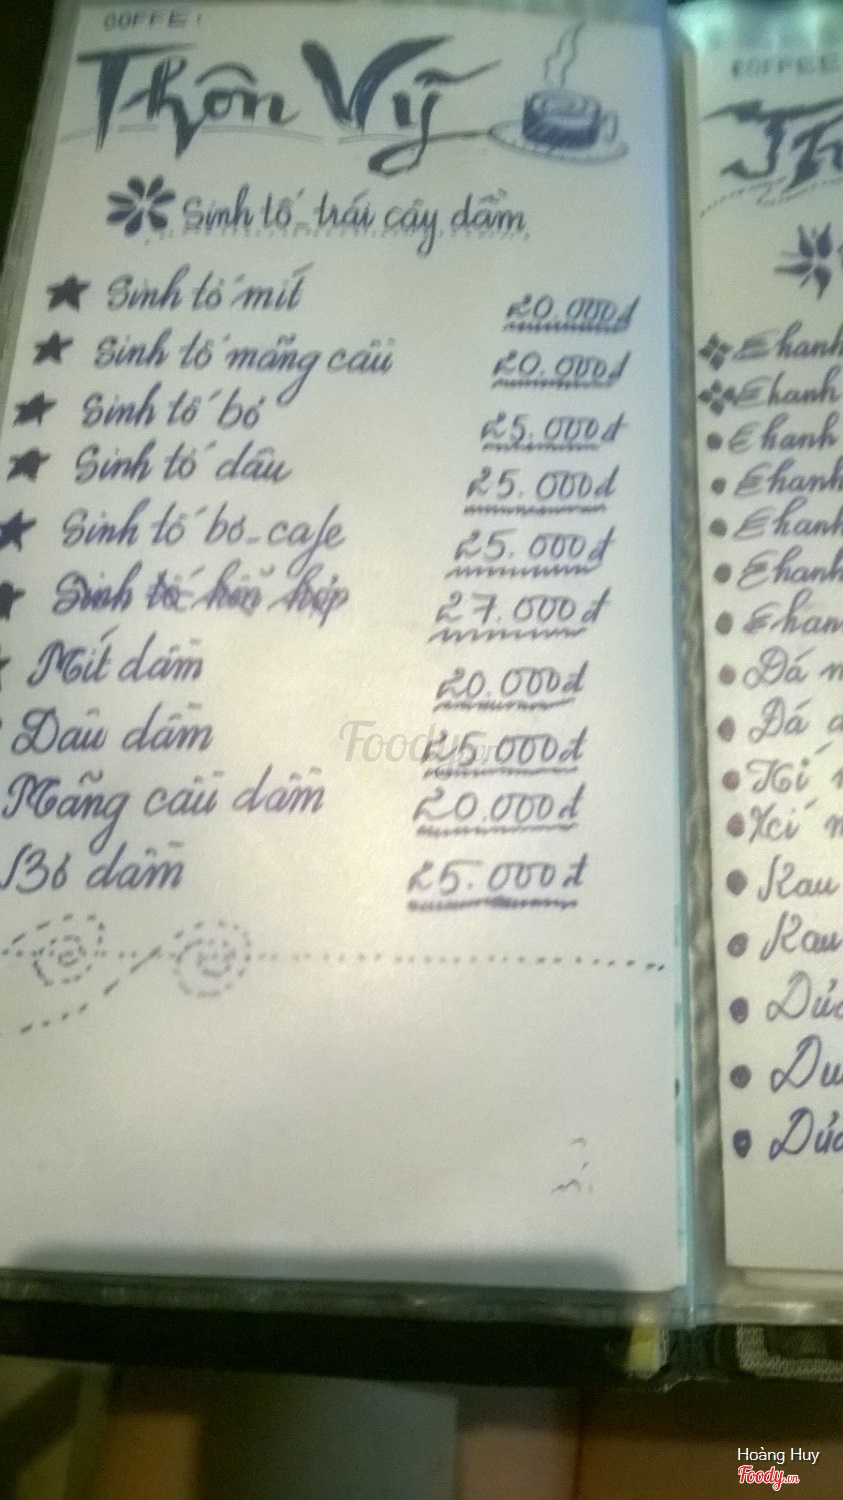 COFFE!
Thôn Vỹ
Sinh tố - trái cây dầm
Sinh tố mít 20.000đ
Sinh tố mãng cầu 20.000đ
Sinh tố bơ 25.000đ
Sinh tố dâu 25.000đ
Sinh tố bơ - cafe 25.000đ
Sinh tố hỗn hợp 27.000đ
Mít dầm 20.000đ
Dâu dầm 25.000đ
Mãng cầu dầm 20.000đ
Bơ dầm 25.000đ
COFFEE
Chanh
Chanh
Chanh
Chanh
Chanh
Chanh
Đá
Đá
Rau
Rau
Foody
Hoàng Huy
Foody.vn